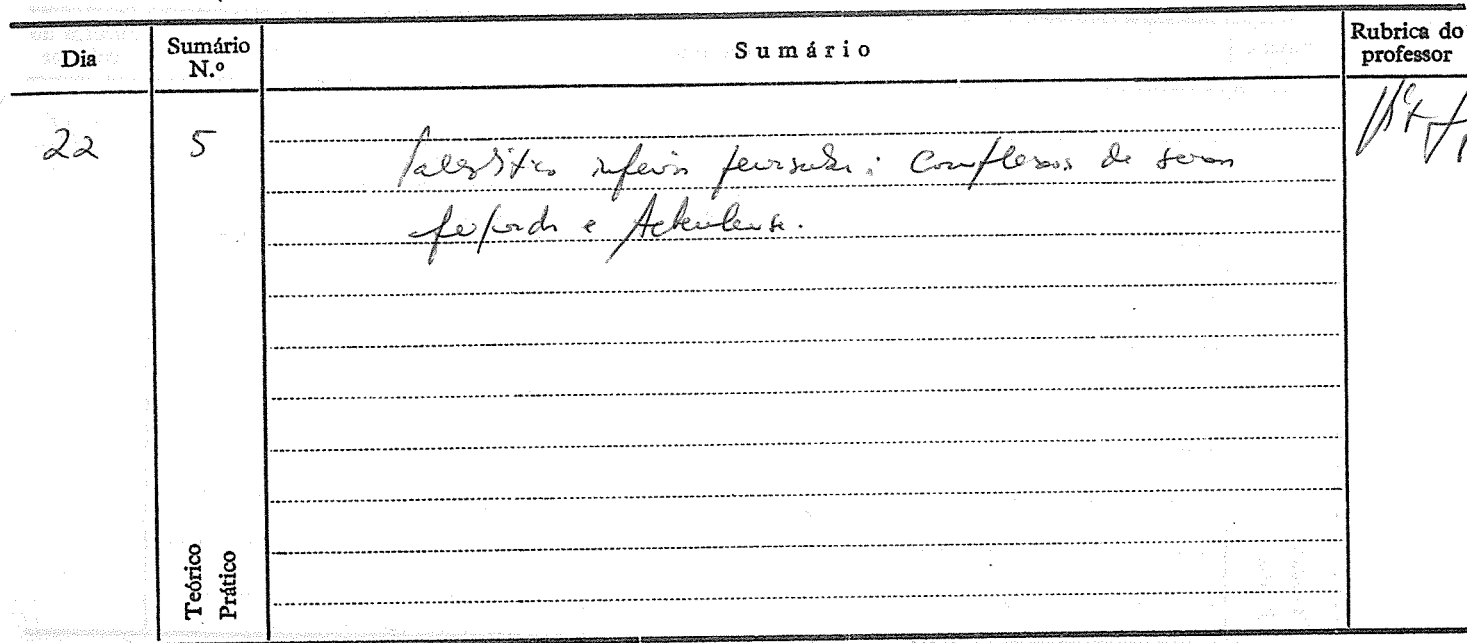 Dia
Sumário
N.º
Sumário
Rubrica do
professor
22
5
Paleolítico inferior peninsular: Complexos de
e Acheulense.
Teórico
Prático